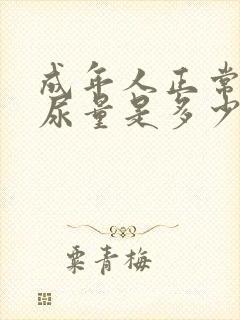 成年人正常
尿量是多少
粟青梅